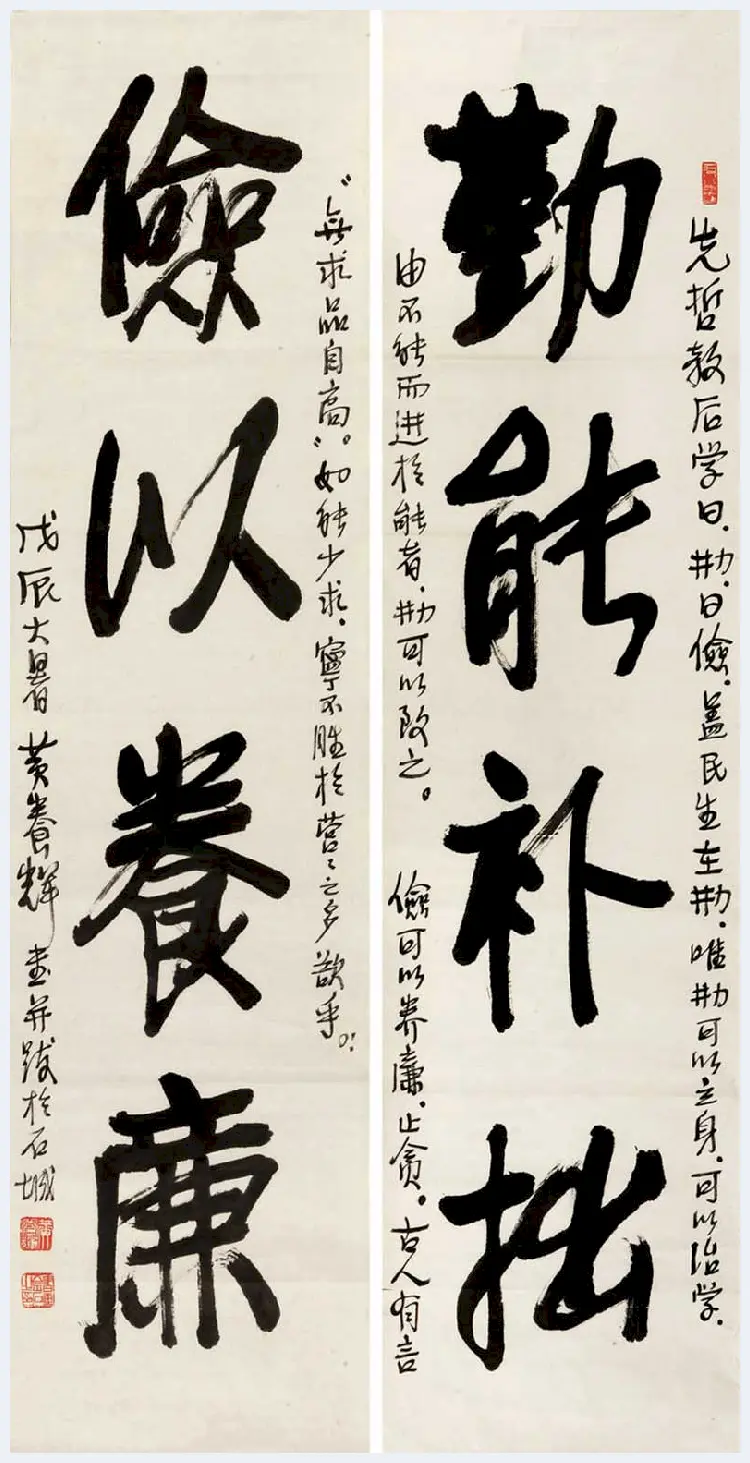 勤能补拙
儉以養廉
先哲教后学曰，勤，曰儉，盖民生在勤，唯勤可以立身，可以治学，
由不能而进於能者，勤可以致之。儉可以养廉，止贪。古人有言
“無求品自高”。如能少求，寧不胜於营々之多欲乎。！
戊辰大暑黄養辉书并跋於石城